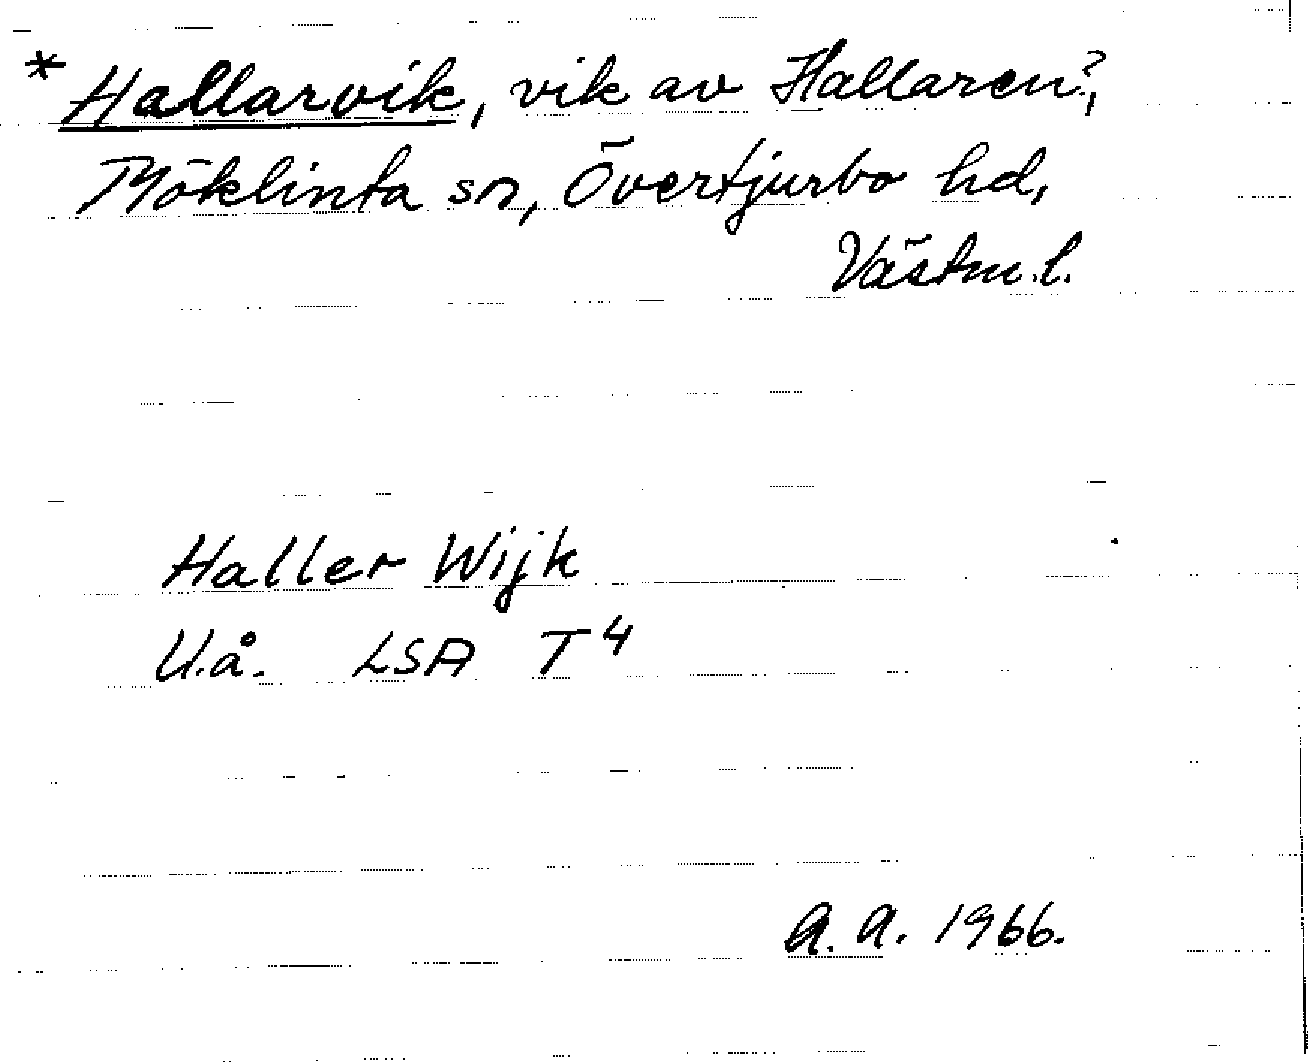 * Hallarvik, vik av Hallaren?,
Möklinta sn, Övertjurbo hd,
Västm.l.
Haller Wijk
U.å. LSA T4
A.A. 1966.